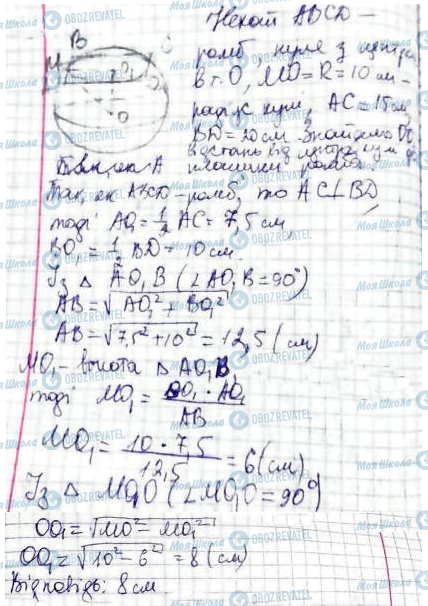 Нехай ABCD –
ромб, куля з центром
в т. O, MO = R = 10 см –
радіус кулі, AC = 15 см,
BD = 20 см. Знайдемо OO₁
відстань від центра кулі до
площини ромба.
B
M
O₁
O
A
Так як ABCD – ромб, то AC⊥BD,
тоді AO₁ = 1/2 AC = 7,5 см,
BO₁ = 1/2 BD = 10 см.
Із △ AO₁B (∠AO₁B = 90°)
AB = √AO₁² + BO₁²
AB = √7,5² + 10² = 12,5 (см)
MO₁ – висота △ AO₁B,
тоді MO₁ = BO₁ · AO₁ / AB
MO₁ = 10 · 7,5 / 12,5 = 6 (см)
Із △ MO₁O (∠MO₁O = 90°)
OO₁ = √MO² – MO₁²
OO₁ = √10² – 6² = 8 (см)
Відповідь: 8 см.
Моя Школа
OBOZREVATEL